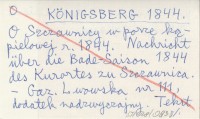 O KÖNIGSBERG 1844.
O Szczawnicy w porze ką-
pielowej r. 1844. Nachricht
über die Bade-Saison 1844
des Kurortes zu Szczawnica.
– Gaz. Lwowska nr 111,
dodatek nadzwyczajny. Tekst